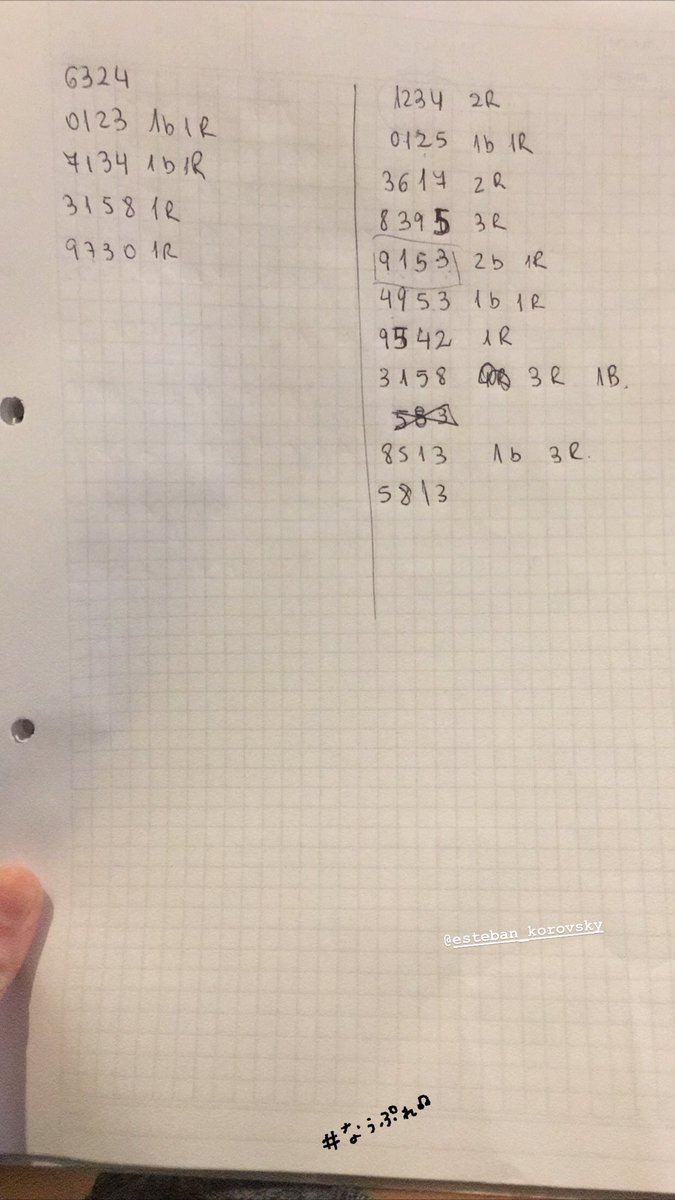 6324
0123 1b 1R
7134 1b 1R
3158 1R
9730 1R
1234 2R
0125 1b 1R
3617 2R
8395 3R
9153 2b 1R
4953 1b 1R
9542 1R
3158 3R 1B.
583
8513 1b 3R.
5813
@esteban_korovsky
#なうぷれ